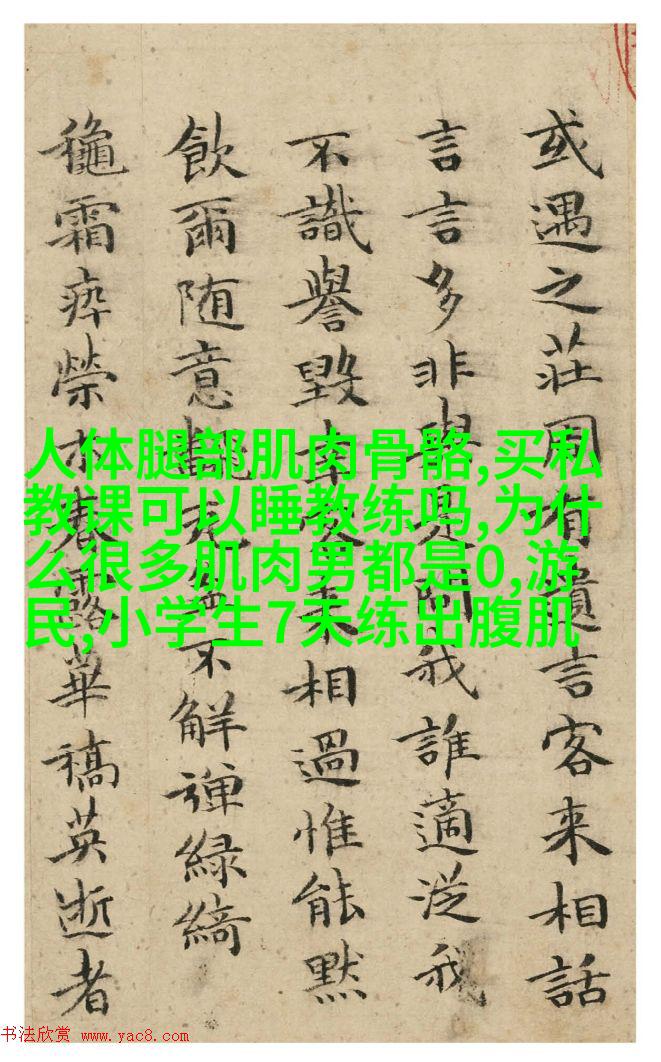 或遇之莊周有遺言客来相話
言言多非與是問我誰適從我
不識譽毀来相過惟能默
飲爾随意不解弹緑綺
龝霜瘁榮木春露華槁英逝者
人体腿部肌肉骨骼,买私
教课可以睡教练吗,为什
么很多肌肉男都是0,游
民,小学生7天练出腹肌
书法欣赏 www.yac8.com